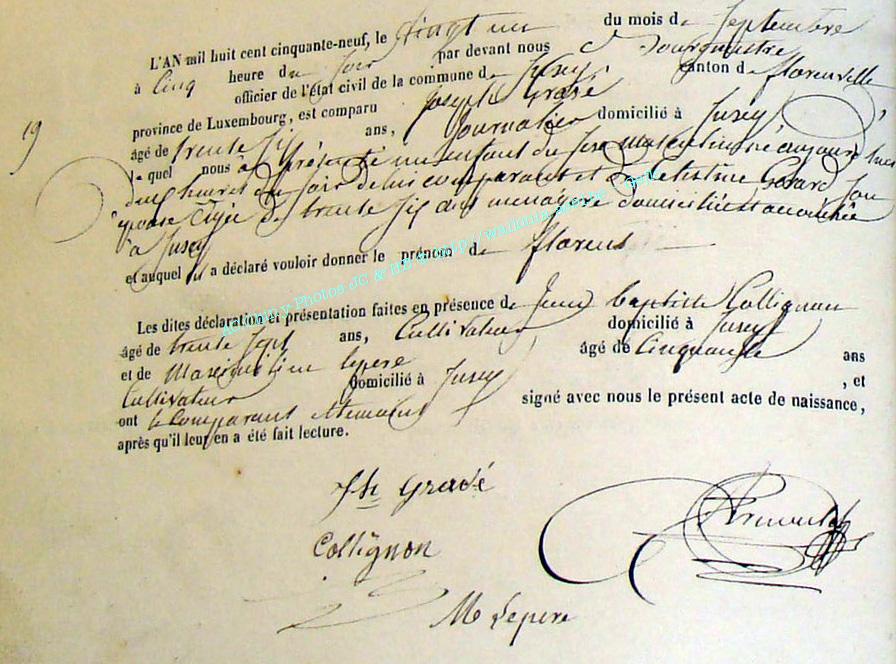 L'AN mil huit cent cinquante-neuf, le vingt un du mois de Septembre
à cinq heure du soir par devant nous Bourgmestre
officier de l'état civil de la commune de Jusey, canton de florenville
province de Luxembourg, est comparu Joseph Gravé
19
âgé de trente six ans, Journalier domicilié à Jusey
le quel nous a présenté un enfant du sexe masculin né aujourd'hui
heures du soir de lui comparant et de Celestine Gerard son
épouse âgée de trente six ans menagère domiciliée et accouchée
à Jusey
et auquel il a déclaré vouloir donner le prénom de florent
Les dites déclaration et présentation faites en présence de Jean baptiste Collignon
âgé de trente sept ans, Cultivateur domicilié à Jusey
et de Maximilien lepere âgé de Cinquante ans
Cultivateur domicilié à Jusey , et
ont le comparant et temoins signé avec nous le présent acte de naissance,
après qu'il leur en a été fait lecture.
Jh Gravé
Collignon
M Lepere